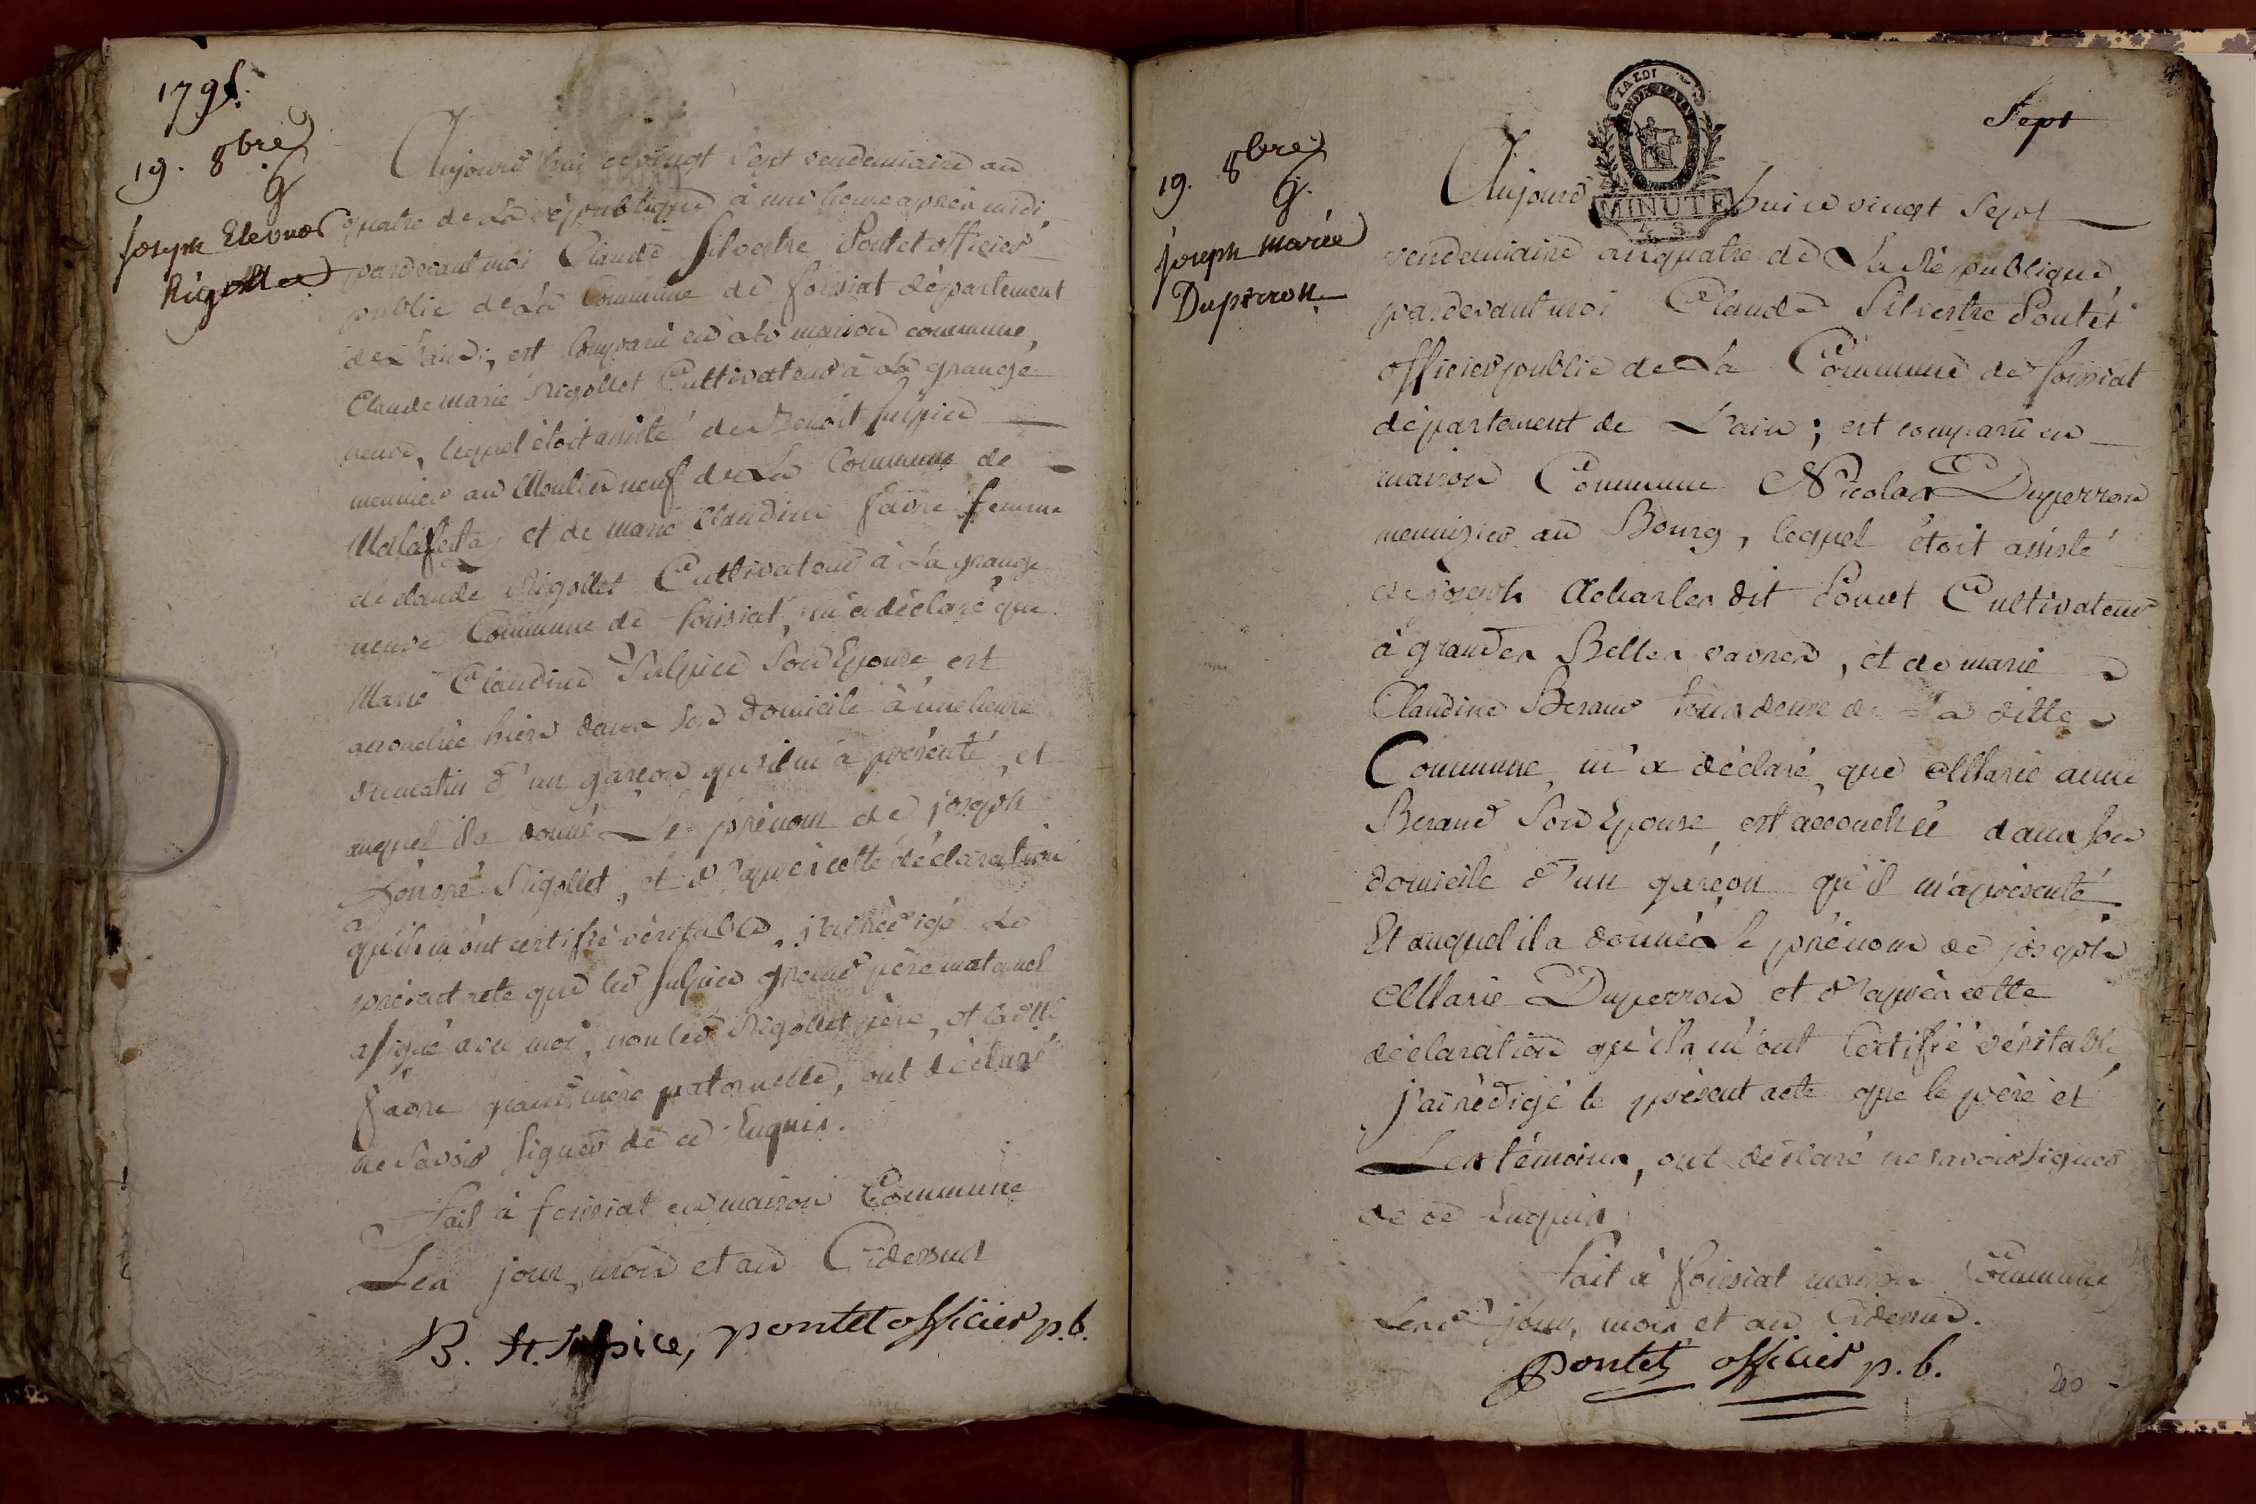 1795.
19. 8bre
G
joseph Eleonor
Rigollet
Aujourd'hui ce vingt sept vendemiaire an
quatre de La république à une heure après midi,
pardevant moi Claude Silvestre Pontet officier
public de La Commune de foissiat département
de L'ain; est Comparu en La maison commune,
Claude marie Rigollet Cultivateur à La grange
neuve, lequel étoit assisté de Benoit sulpice
meunier au Moulin neuf de La Commune de
Malafreta et de marie Claudine favre femme
de claude Rigollet Cultivateur à La grange
neuve Commune de foissiat, m'a déclaré que
Marie Claudine Sulpice Son Epouse est
accouchée hier dans son domicile à une heure
du matin d'un garçon qu'il m'a présenté, et
auquel il a donné Le prénom de joseph
Rigollet, et d'après cette déclaration
qu'ils m'ont certifié véritable, j'ai rédigé Le
présent acte que led sulpice grand père maternel
a signé avec moi, non led Rigollet père, et ladte
favre grand mère paternelle, ont déclaré
ne savoir signer de ce Enquis.
fait à foissiat en maison Commune
Les jour, mois et an Cidessus
B. St. Sulpice, pontet officier p.b.
Sept
MINUTE
19. 8bre
G.
joseph marie
Duperron
Aujourd'hui ce vingt Sept
vendemiaire an quatre de La République,
pardevant moi Claude Silvestre Pontet
officier public de La Commune de foissiat
département de L'ain; est comparu en
maison Commune Nicolas Duperron
menuizier au Bourg, lequel étoit assisté
de joseph Acharles dit Pouet Cultivateur
à grandes Belles vavres, et de marie
Claudine Beraud tous deux de La ditte
Commune, m'a déclaré, que Marie anne
Beraud Son Epouse, est accouchée dans son
domicile d'un garçon qu'il m'a présenté
Et auquel il a donné Le prénom de joseph
Marie Duperron et d'après cette
déclaration qu'ils m'ont Certifié véritable,
j'ai rédigé le présent acte que le père et
Les témoins, ont déclaré ne savoir signer
de ce Enquis
fait à foissiat maison Commune
Lesd jour, mois et an Cidessus.
pontet officier p.b.
20